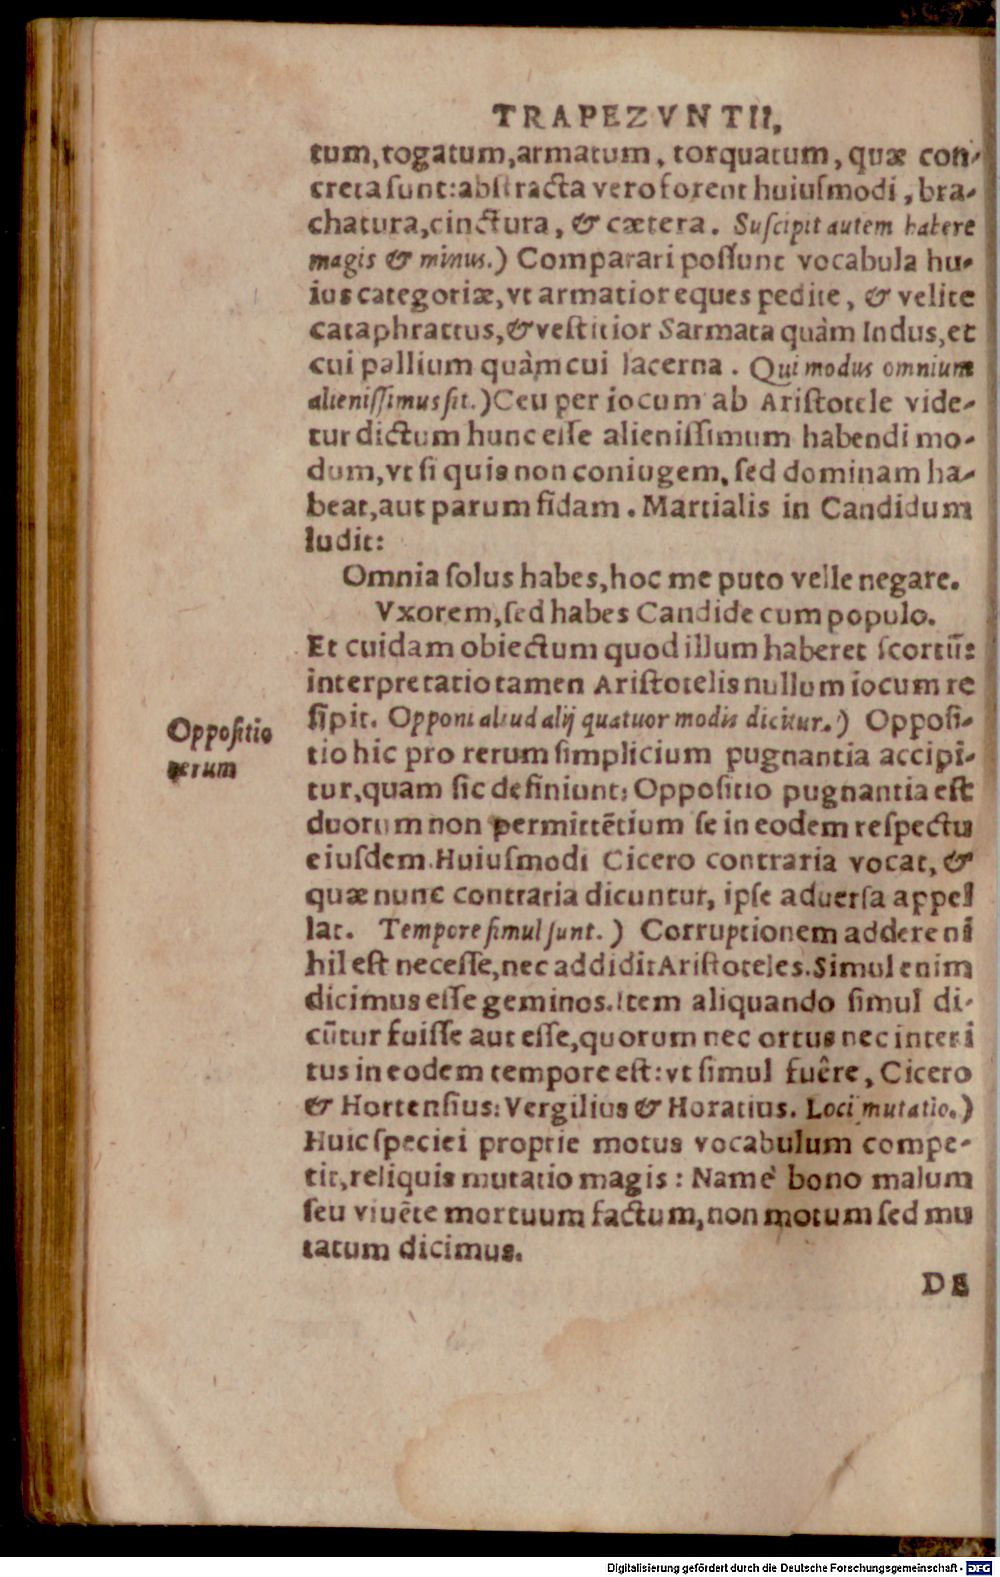 TRAPEZVNTII,
tum, togatum, armatum, torquatum, quæ con-
creta sunt: abstracta vero forent huiusmodi, bra-
chatura, cinctura, & cætera. Suscipit autem habere
magis & minus.) Comparari possunt vocabula hu-
ius categoriæ, vt armatior eques pedite, & velite
cataphrattus, & vestitior Sarmata quàm Indus, et
cui pallium quàm cui lacerna. Qui modus omnium
alienissimus sit.) Ceu per iocum ab Aristotele vide-
tur dictum hunc esse alienissimum habendi mo-
dum, vt si quis non coniugem, sed dominam ha-
beat, aut parum fidam. Martialis in Candidum
ludit:
Omnia solus habes, hoc me puto velle negare.
Vxorem, sed habes Candide cum populo.
Et cuidam obiectum quod illum haberet scortū:
interpretatio tamen Aristotelis nullum iocum re
sipit. Opponi aliud alij quatuor modis dicitur.) Opposi-
Oppositio
rerum
tio hic pro rerum simplicium pugnantia accipi-
tur, quam sic definiunt: Oppositio pugnantia est
duorum non permittētium se in eodem respectu
eiusdem. Huiusmodi Cicero contraria vocat, &
quæ nunc contraria dicuntur, ipse aduersa appel
lat. Tempore simul sunt.) Corruptionem addere ni
hil est necesse, nec addidit Aristoteles. Simul enim
dicimus esse geminos. Item aliquando simul di-
cūtur fuisse aut esse, quorum nec ortus nec interi
tus in eodem tempore est: vt simul fuêre, Cicero
& Hortensius: Vergilius & Horatius. Loci mutatio.)
Huic speciei proprie motus vocabulum compe-
tit, reliquis mutatio magis: Nam è bono malum
seu viuēte mortuum factum, non motum sed mu
tatum dicimus.
DE
Digitalisierung gefördert durch die Deutsche Forschungsgemeinschaft - DFG